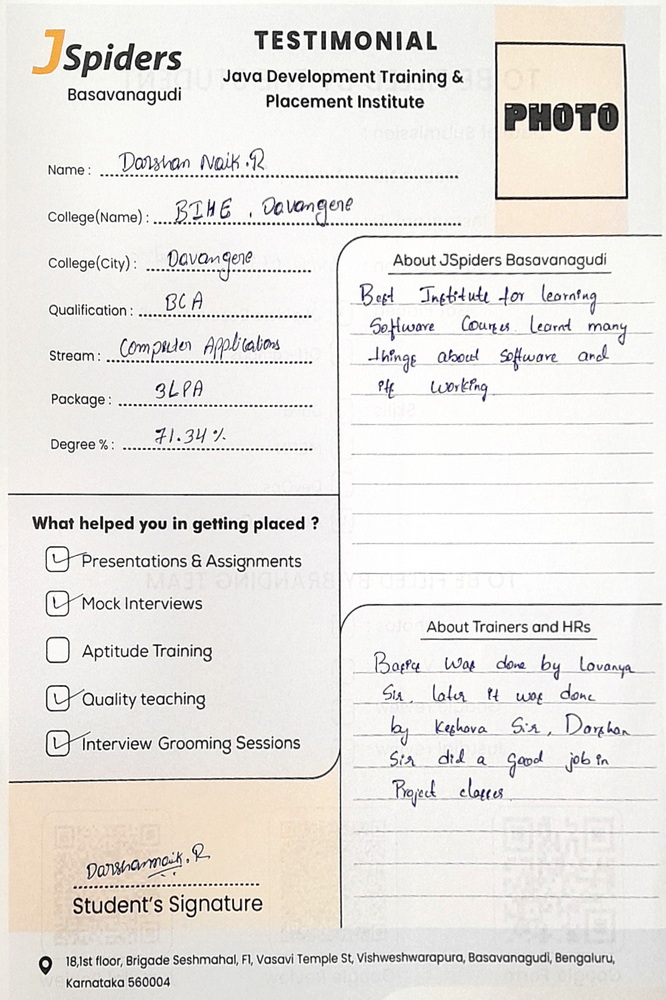 JSpiders
Basavanagudi
TESTIMONIAL
Java Development Training &
Placement Institute
PHOTO
Name : Darshan Naik.R
College(Name) : BIHE , Davangere
College(City) : Davangere
Qualification : BCA
Stream : Computer Applications
Package : 3LPA
Degree % : 71.34 %
What helped you in getting placed ?
Presentations & Assignments
Mock Interviews
Aptitude Training
Quality teaching
Interview Grooming Sessions
Darshannaik.R
Student's Signature
About JSpiders Basavanagudi
Best Institute for learning
Software Courses learnt many
things about software and
its working
About Trainers and HRs
Basics was done by Lavanya
Sir, later it was done
by Keshava Sir, Darshan
Sir did a good job in
Project classes
18,1st floor, Brigade Seshmahal, F1, Vasavi Temple St, Vishweshwarapura, Basavanagudi, Bengaluru,
Karnataka 560004